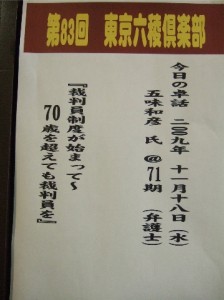 第83回　東京六稜倶楽部
今日の卓話　二〇〇九年　十一月十八日（水）
五味和彦　氏＠71期　（弁護士）
『裁判員制度が始まって～
70歳を超えても裁判員を』